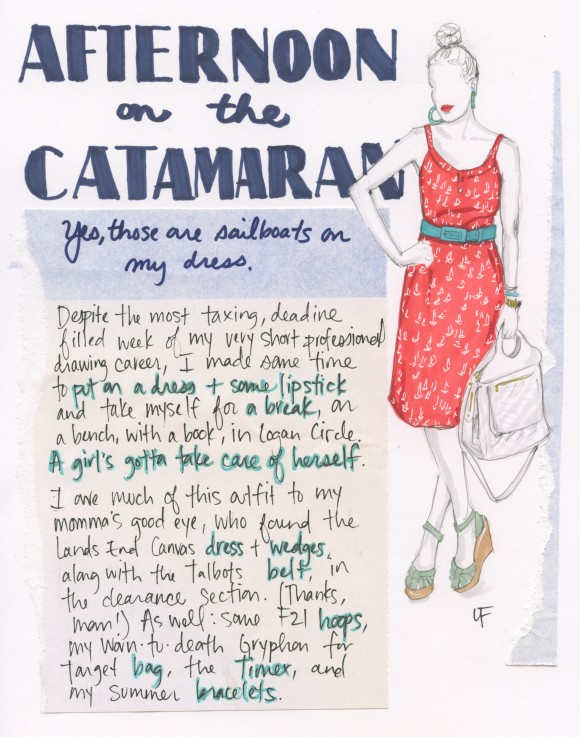 AFTERNOON
on the
CATAMARAN
Yes, those are sailboats on
my dress.
Despite the most taxing, deadine
filled week of my very short professional
drawing career, I made some time
to put on a dress + some lipstick
and take myself for a break, on
a bench, with a book, in Logan Circle.
A girl's gotta take care of herself.
I owe much of this outfit to my
momma's good eye, who found the
Lands End Canvas dress + wedges,
along with the Talbots belt, in
the clearance section. (Thanks,
mom!) As well: some F21 hoops,
my worn-to-death Gryphon for
Target bag, the Timex, and
my summer bracelets.
LF